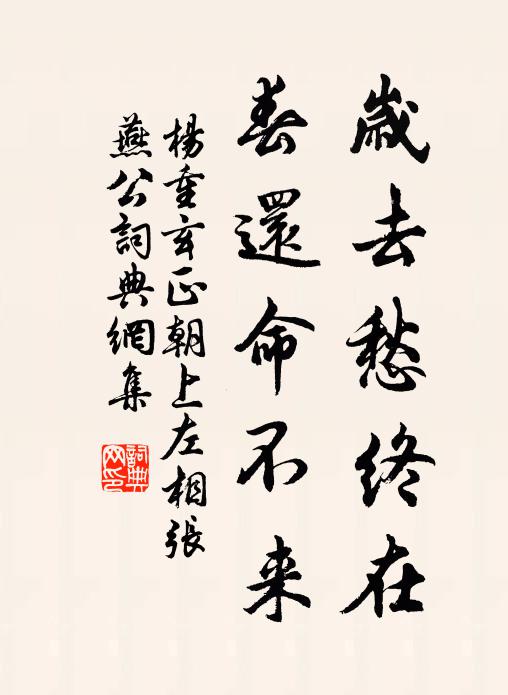 歲去愁終在
春還命不来
楊重玄正朝上左相張
燕公詞典網集
詞典網印